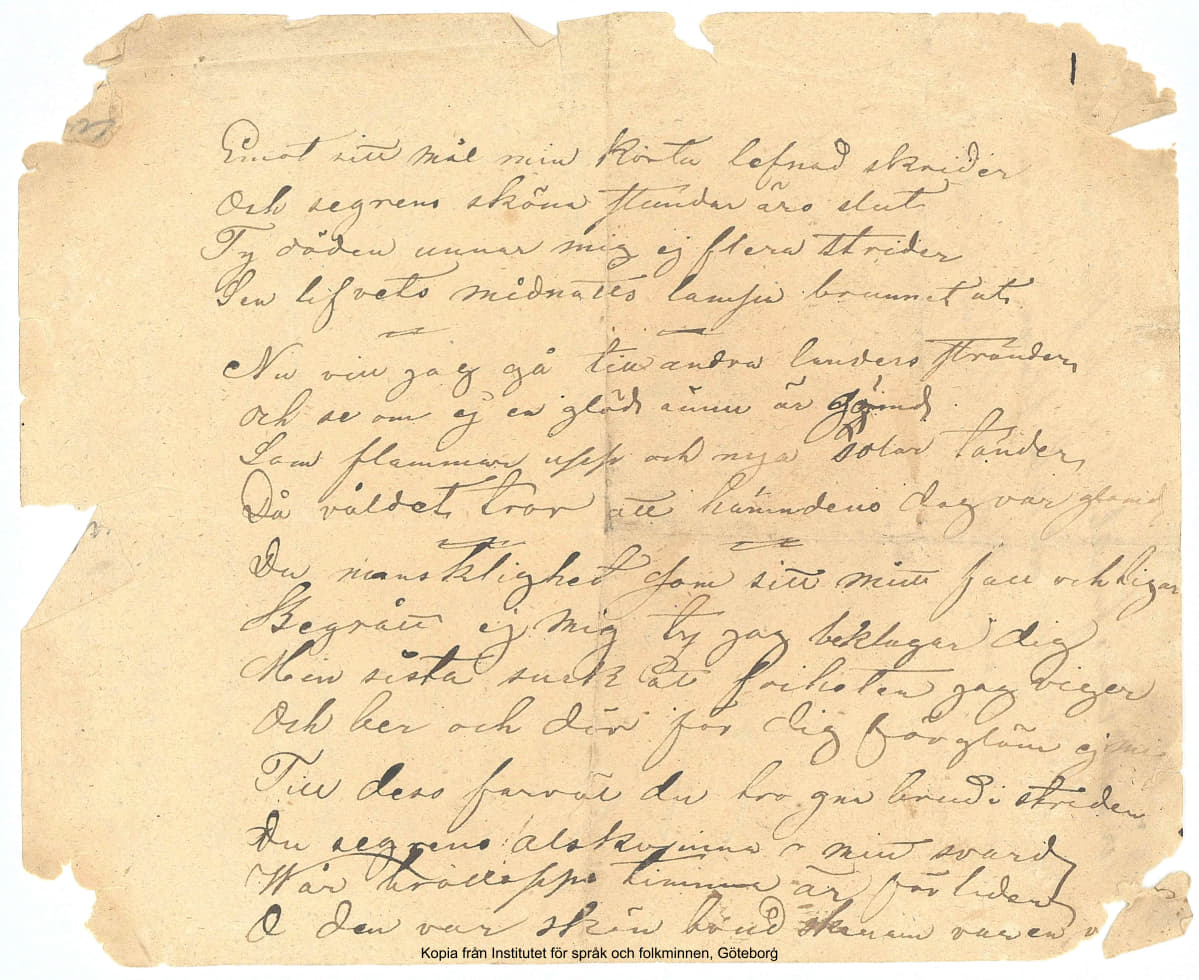 Emot sitt mål min korta lefnad skrider
Och segrens sköna stundar äro slut
Ty döden unnar mig ej flera strider
Sen lifvets midnatts lampa brunnet ut
Nu vill jag gå till andra landers stränder
och se om ej en glöd ännu är gömd
Som flammar upp och nya solar tänder
Då våldet tror att hämndens dag var glömd
Du mänsklighet som sitt mitt fall och
Begrått ej mig ty jag beklagar dig
Min sista suck åt friheten jag viger
Och ber och dör för dig förgläm ej mig
Till dess farväl du trogna brud i striden
Du segrens älskarinna mitt svärd
Wår bröllopps timma är förliden
O den var skön var en
Kopia från Institutet för språk och folkminnen, Göteborg